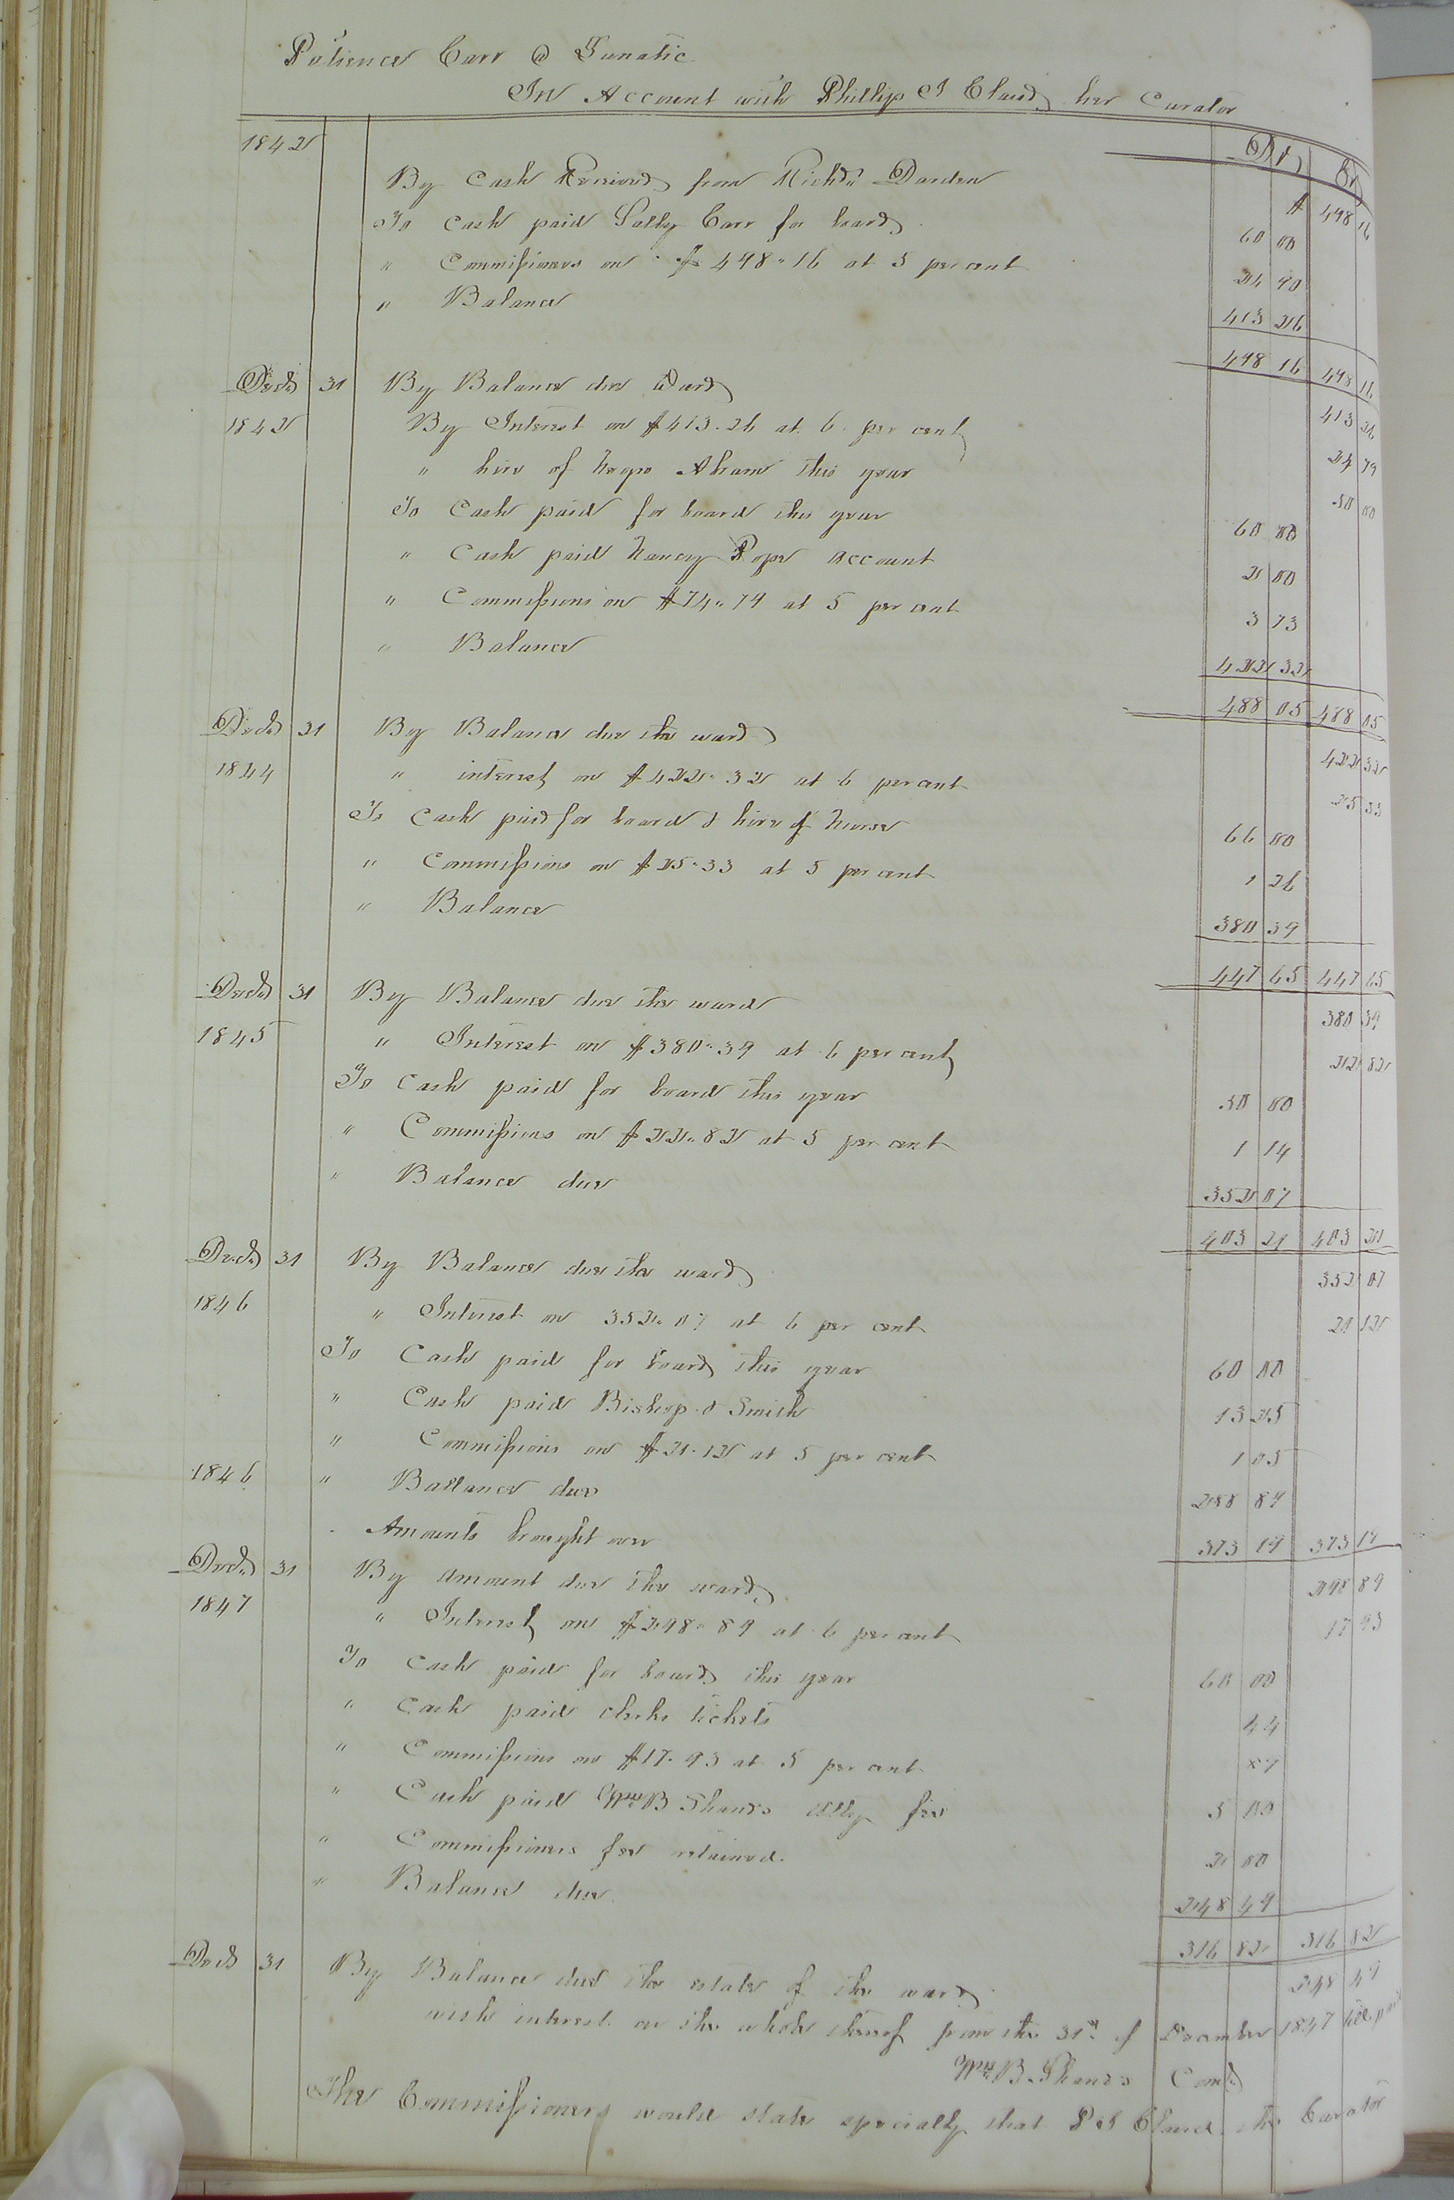 Patience Carr a Lunatic
In Account with Phillip J Claud her Curator
1842 Dr Cr
By Cash Received from Richd Darden $ 498 16
To Cash paid Sally Carr for board 60 00
" Commissioners on $498.16 at 5 per cent 24 90
" Balance 413 26
498 16 498 16
Decr 31 By Balance due Ward 413 26
1842 By Interest on $413.26 at 6 per cent 24 79
" hire of Negro Abram this year 50 00
To Cash paid for board this year 60 00
" Cash paid Nancy Pope account 2 00
" Commissions on $74.79 at 5 per cent 3 73
" Balance 422 32
488 05 488 05
Decr 31 By Balance due the ward 422 32
1844 " interest on $422.32 at 6 per cent 25 33
To Cash paid for board & hire of Nurse 66 00
" Commissions on $25.33 at 5 per cent 1 26
" Balance 380 39
447 65 447 65
Decr 31 By Balance due the ward 380 39
1845 " Interest on $380.39 at 6 per cent 22 82
To Cash paid for board this year 50 00
" Commissions on $22.82 at 5 per cent 1 14
" Balance due 352 07
403 21 403 21
Decr 31 By Balance due the ward 352 07
1846 " Interest on 352.07 at 6 per cent 21 12
To Cash paid for board this year 60 00
" Cash paid Bishop & Smith 13 25
" Commissions on $21.12 at 5 per cent 1 05
1846 " Ballance due 298 89
Amounts brought over 373 19 373 19
Decr 31 By Amount due the ward 298 89
1847 " Interest on $298.89 at 6 per cent 17 93
To Cash paid for board this year 60 00
" Cash paid clerks tickets 44
" Commissions on $17.93 at 5 per cent 89
" Cash paid Wm B Shands Atty fee 5 00
" Commissioners fee retained 2 00
" Balance due 248 49
316 82 316 82
Decr 31 By Balance due the estate of the ward 248 49
with interest on the whole thereof from the 31st of December 1847 till paid
Wm B. Shands Comr
The Commissioners would state specially that P J Claud the Curator